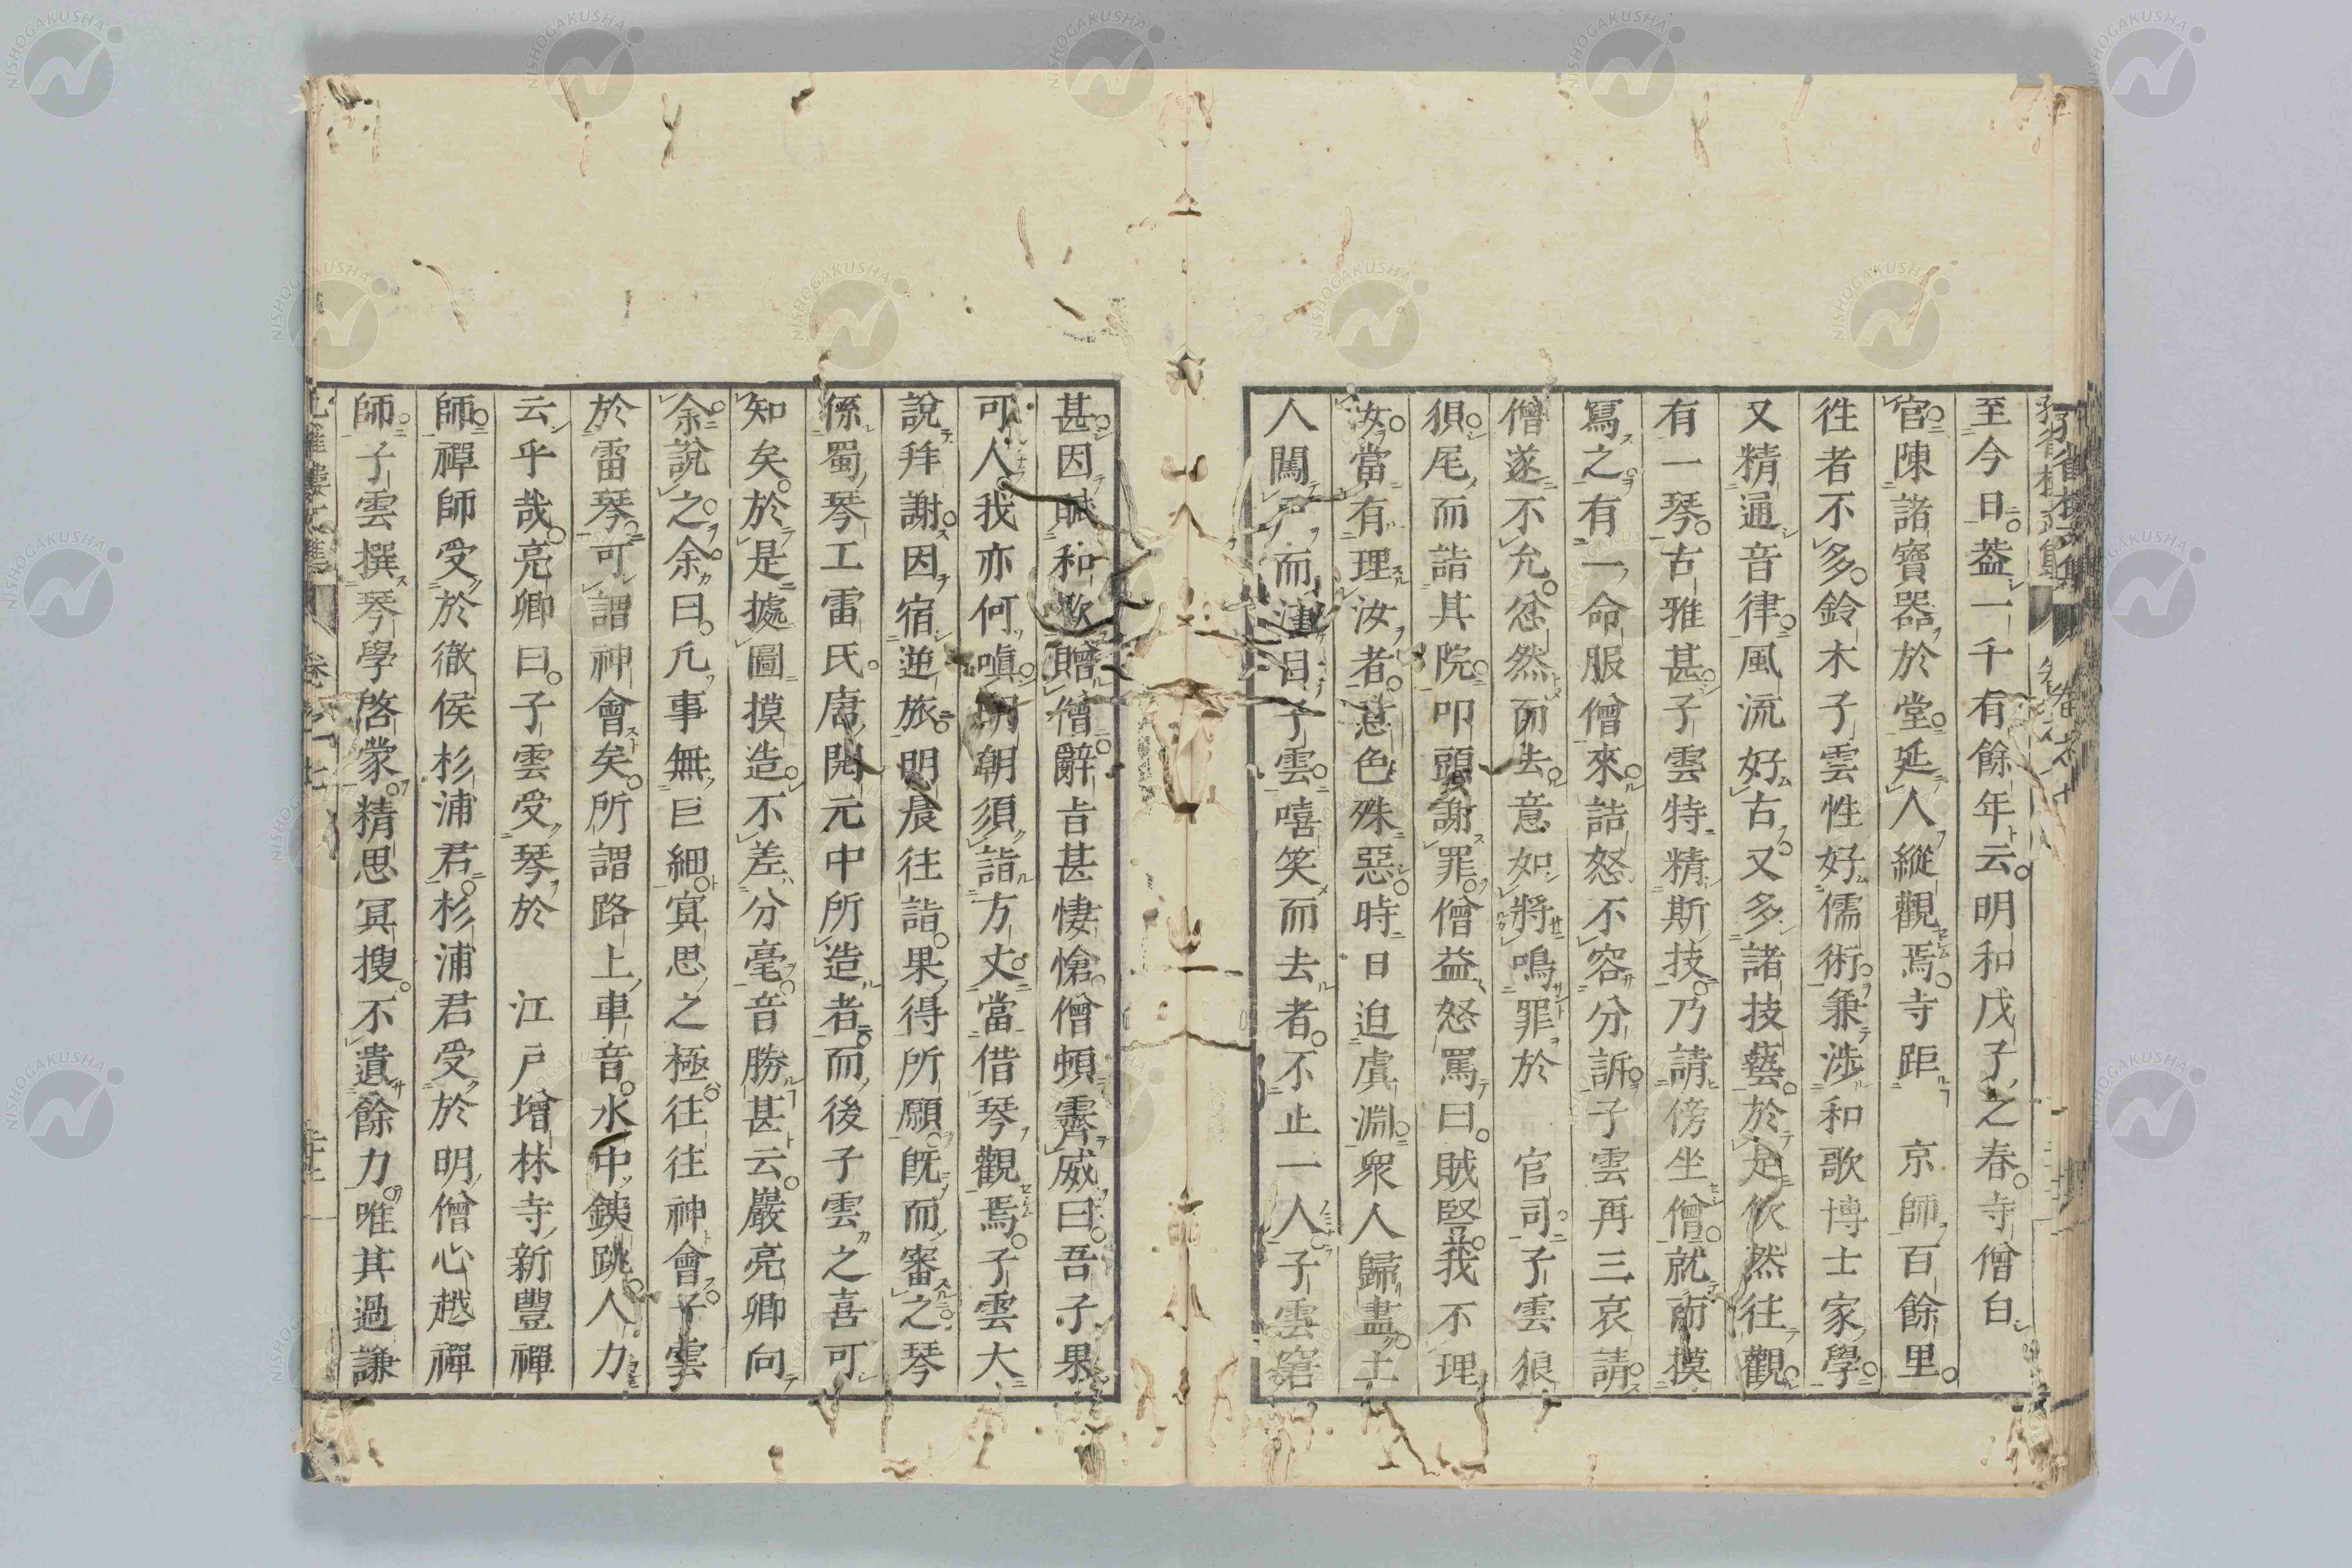 至今日。葢一千有餘年云。明和戊子之春。寺僧白
官陳諸寶器於堂。延人縱觀焉。寺距　京師百餘里。
往者不多。鈴木子雲性好儒術。兼涉和歌博士家學。
又精通音律。風流好古。又多諸技藝。於是欣然往觀。
有一琴。古雅甚。子雲特精斯技。乃請傍坐僧。就而摸
寫之。有一命服僧來。詰怒不容分訴。子雲再三哀請。
僧遂不允。忿然而去。意如將鳴罪於　官司。子雲狼
狽尾而詣其院。叩頭謝罪。僧益怒罵曰。賊豎。我不理
汝。當有理汝者。意色殊惡。時日迫虞淵。衆人歸盡。士
人闖戶而日子雲。嘻笑而去者。不止一人。子雲窘
甚。因賦和歌贈僧。辭旨甚悽愴。僧頓霽威曰。吾子果
可人。我亦何嗔。明朝須詣方丈。當借琴觀焉。子雲大
說拜謝。因宿逆旅。明晨往詣。果得所願。既而審之。琴
係蜀琴工雷氏。唐開元中所造者。而後子雲之喜可
知矣。於是據圖摸造。不差分毫。音勝甚云。巖亮卿向
余說之。余曰。凡事無巨細。寘思之極。往往神會。子雲
於雷琴。可謂神會矣。所謂路上車音。水中鐵跳。人力
云乎哉。亮卿曰。子雲受琴於　江戶增林寺新豐禪
師。禪師受於徹侯杉浦君。杉浦君受於明僧心越禪
師。子雲撰琴學啓蒙。精思冥搜。不遺餘力。唯其過謙